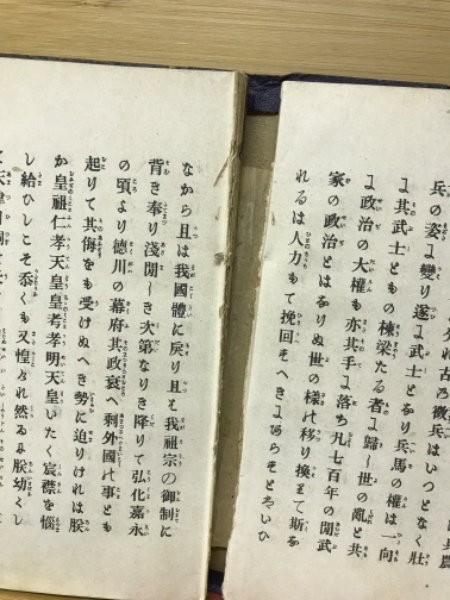 れ古の徴兵はいつとなく壯
兵の姿に變り遂に武士となり兵馬の權は一向
に其武士ともの棟梁たる者に歸し世の亂と共
に政治の大權も亦其手に落ち凡七百年の間武
家の政治とはなりぬ世の樣の移り換りて斯な
れるは人力もて挽回すへきにあらすとはいひ
なから且は我國體に戻り且は我祖宗の御制に
背き奉り淺間しき次第なりき降りて弘化嘉永
の頃より德川の幕府其政衰へ剩外國の事とも
起りて其侮をも受けぬへき勢に迫りけれは朕
か皇祖仁孝天皇皇考孝明天皇いたく宸襟を惱
し給ひしこそ忝くも又惶けれ然るに朕幼くし